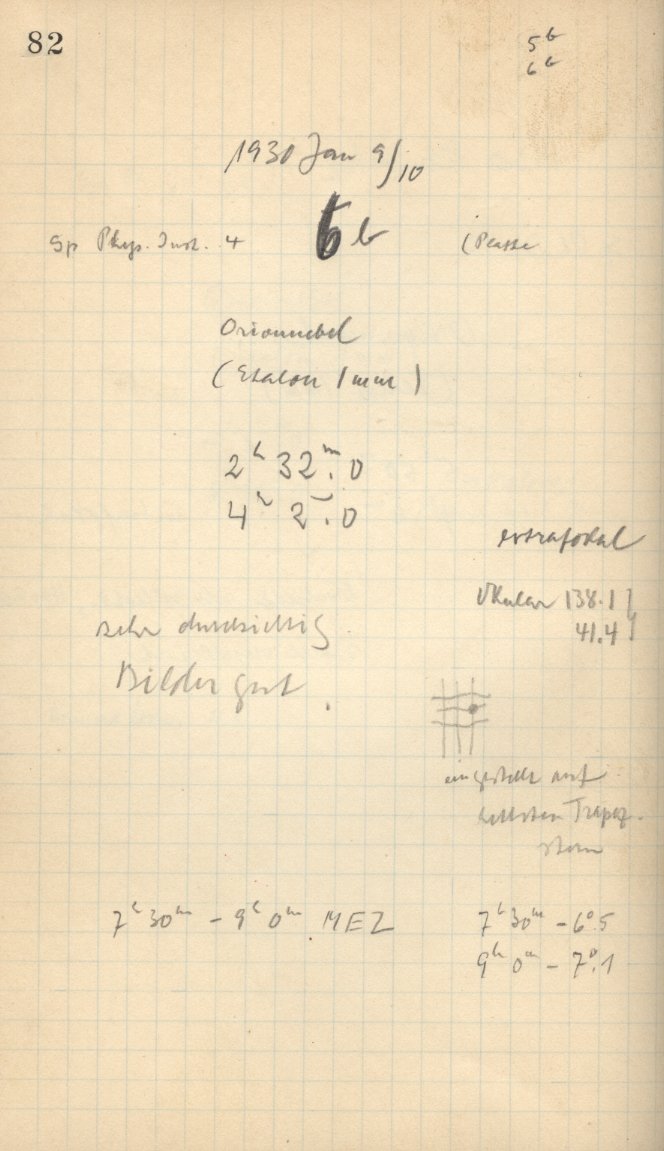 82
5b
6b
1930 Jan 9/10
Sp Phys. Inst. 4 6b (Platte
Orionnebel
(Etalon 1mm)
2h 32m.0
4h 2m.0
extrafokal
Okular 138.1
41.4
sehr durchsichtig
Bilder gut.
eingestellt auf
hellsten Trapez-
stern
7h 30m - 9h 0m MEZ
7h 30m - 6°.5
9h 0m - 7°.1